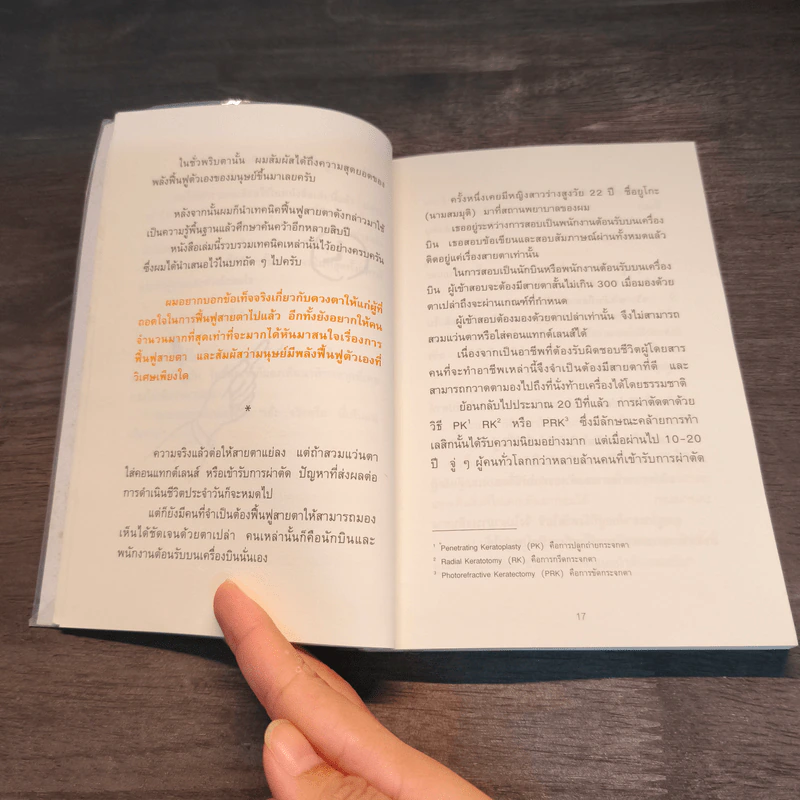 ในชั่วพริบตานั้น ผมสัมผัสได้ถึงความสุดยอดของ
พลังฟื้นฟูตัวเองของมนุษย์ขึ้นมาเลยครับ
หลังจากนั้นผมก็นำเทคนิคฟื้นฟูสายตาดังกล่าวมาใช้
เป็นความรู้พื้นฐานแล้วศึกษาค้นคว้าอีกหลายสิบปี
หนังสือเล่มนี้รวบรวมเทคนิคเหล่านั้นไว้อย่างครบครัน
ซึ่งผมได้นำเสนอไว้ในบทถัด ๆ ไปครับ
ผมอยากบอกข้อเท็จจริงเกี่ยวกับดวงตาให้แก่ผู้ที่
ถอดใจในการฟื้นฟูสายตาไปแล้ว อีกทั้งยังอยากให้คน
จำนวนมากที่สุดเท่าที่จะมากได้หันมาสนใจเรื่องการ
ฟื้นฟูสายตา และสัมผัสว่ามนุษย์มีพลังฟื้นฟูตัวเองที่
วิเศษเพียงใด
*
ความจริงแล้วต่อให้สายตาแย่ลง แต่ถ้าสวมแว่นตา
ใส่คอนแทกต์เลนส์ หรือเข้ารับการผ่าตัด ปัญหาที่ส่งผลต่อ
การดำเนินชีวิตประจำวันก็จะหมดไป
แต่ก็ยังมีคนที่จำเป็นต้องฟื้นฟูสายตาให้สามารถมอง
เห็นได้ชัดเจนด้วยตาเปล่า คนเหล่านั้นก็คือนักบินและ
พนักงานต้อนรับบนเครื่องบินนั่นเอง
ครั้งหนึ่งเคยมีหญิงสาวร่างสูงวัย 22 ปี ชื่อยูโกะ
(นามสมมุติ) มาที่สถานพยาบาลของผม
เธออยู่ระหว่างการสอบเป็นพนักงานต้อนรับบนเครื่อง
บิน เธอสอบข้อเขียนและสอบสัมภาษณ์ผ่านทั้งหมดแล้ว
ติดอยู่แค่เรื่องสายตาเท่านั้น
ในการสอบเป็นนักบินหรือพนักงานต้อนรับบนเครื่อง
บิน ผู้เข้าสอบจะต้องมีสายตาสั้นไม่เกิน 300 เมื่อมองด้วย
ตาเปล่าถึงจะผ่านเกณฑ์ที่กำหนด
ผู้เข้าสอบต้องมองด้วยตาเปล่าเท่านั้น จึงไม่สามารถ
สวมแว่นตาหรือใส่คอนแทกต์เลนส์ได้
เนื่องจากเป็นอาชีพที่ต้องรับผิดชอบชีวิตผู้โดยสาร
คนที่จะทำอาชีพเหล่านี้จึงจำเป็นต้องมีสายตาที่ดี และ
สามารถกวาดตามองไปถึงที่นั่งท้ายเครื่องได้โดยธรรมชาติ
ย้อนกลับไปประมาณ 20 ปีที่แล้ว การผ่าตัดตาด้วย
วิธี PK¹ RK² หรือ PRK³ ซึ่งมีลักษณะคล้ายการทำ
เลสิกนั้นได้รับความนิยมอย่างมาก แต่เมื่อผ่านไป 10-20
ปี จู่ ๆ ผู้คนทั่วโลกกว่าหลายล้านคนที่เข้ารับการผ่าตัด
¹ Penetrating Keratoplasty (PK) คือการปลูกถ่ายกระจกตา
² Radial Keratotomy (RK) คือการกรีดกระจกตา
³ Photorefractive Keratectomy (PRK) คือการขัดกระจกตา
17